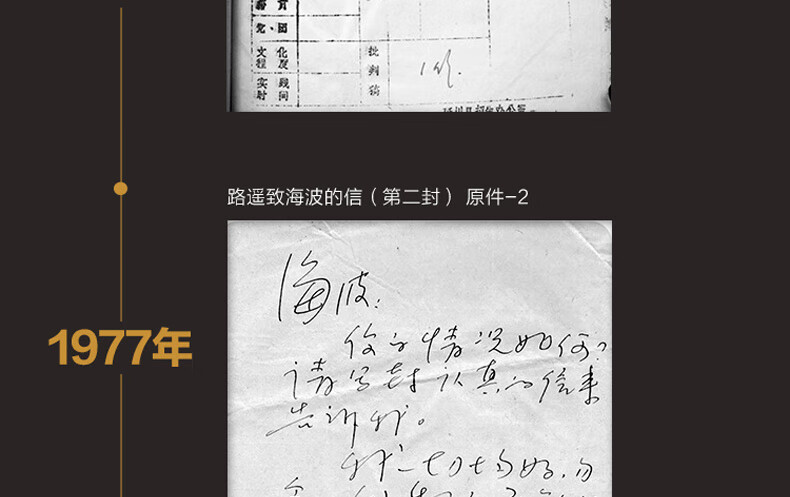 党·团
文化
程度
实际
顾问
批
判
稿
路遥致海波的信（第二封） 原件-2
1977年
海波:
你的情况如何?
请写封认真的信来
告诉我。
我一切均好,勿